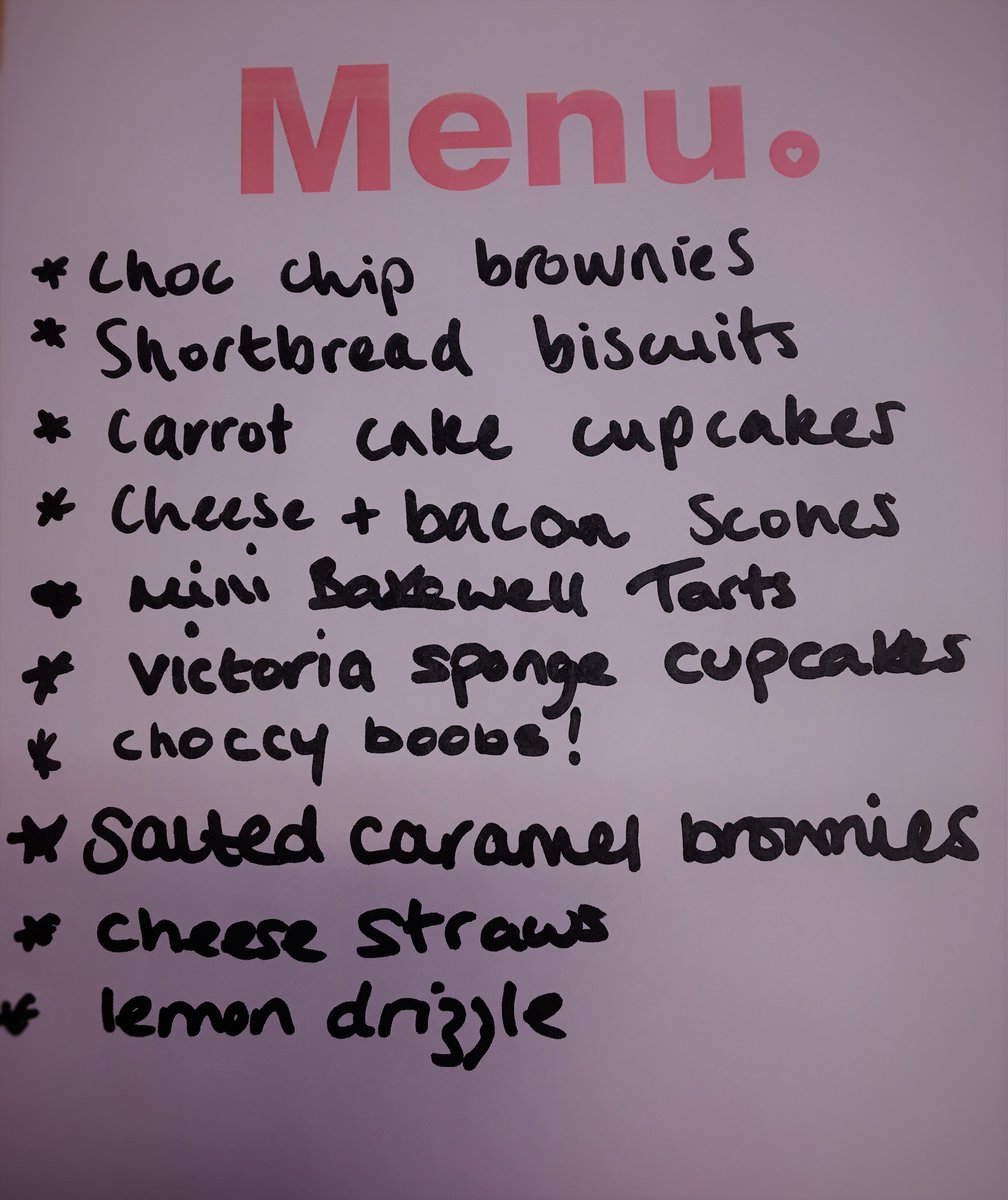 Menu.
* Choc chip brownies
* Shortbread biscuits
* Carrot cake cupcakes
* Cheese + bacon scones
* Mini Bakewell Tarts
* Victoria sponge cupcakes
* choccy boobs!
* Salted caramel brownies
* cheese straws
* lemon drizzle